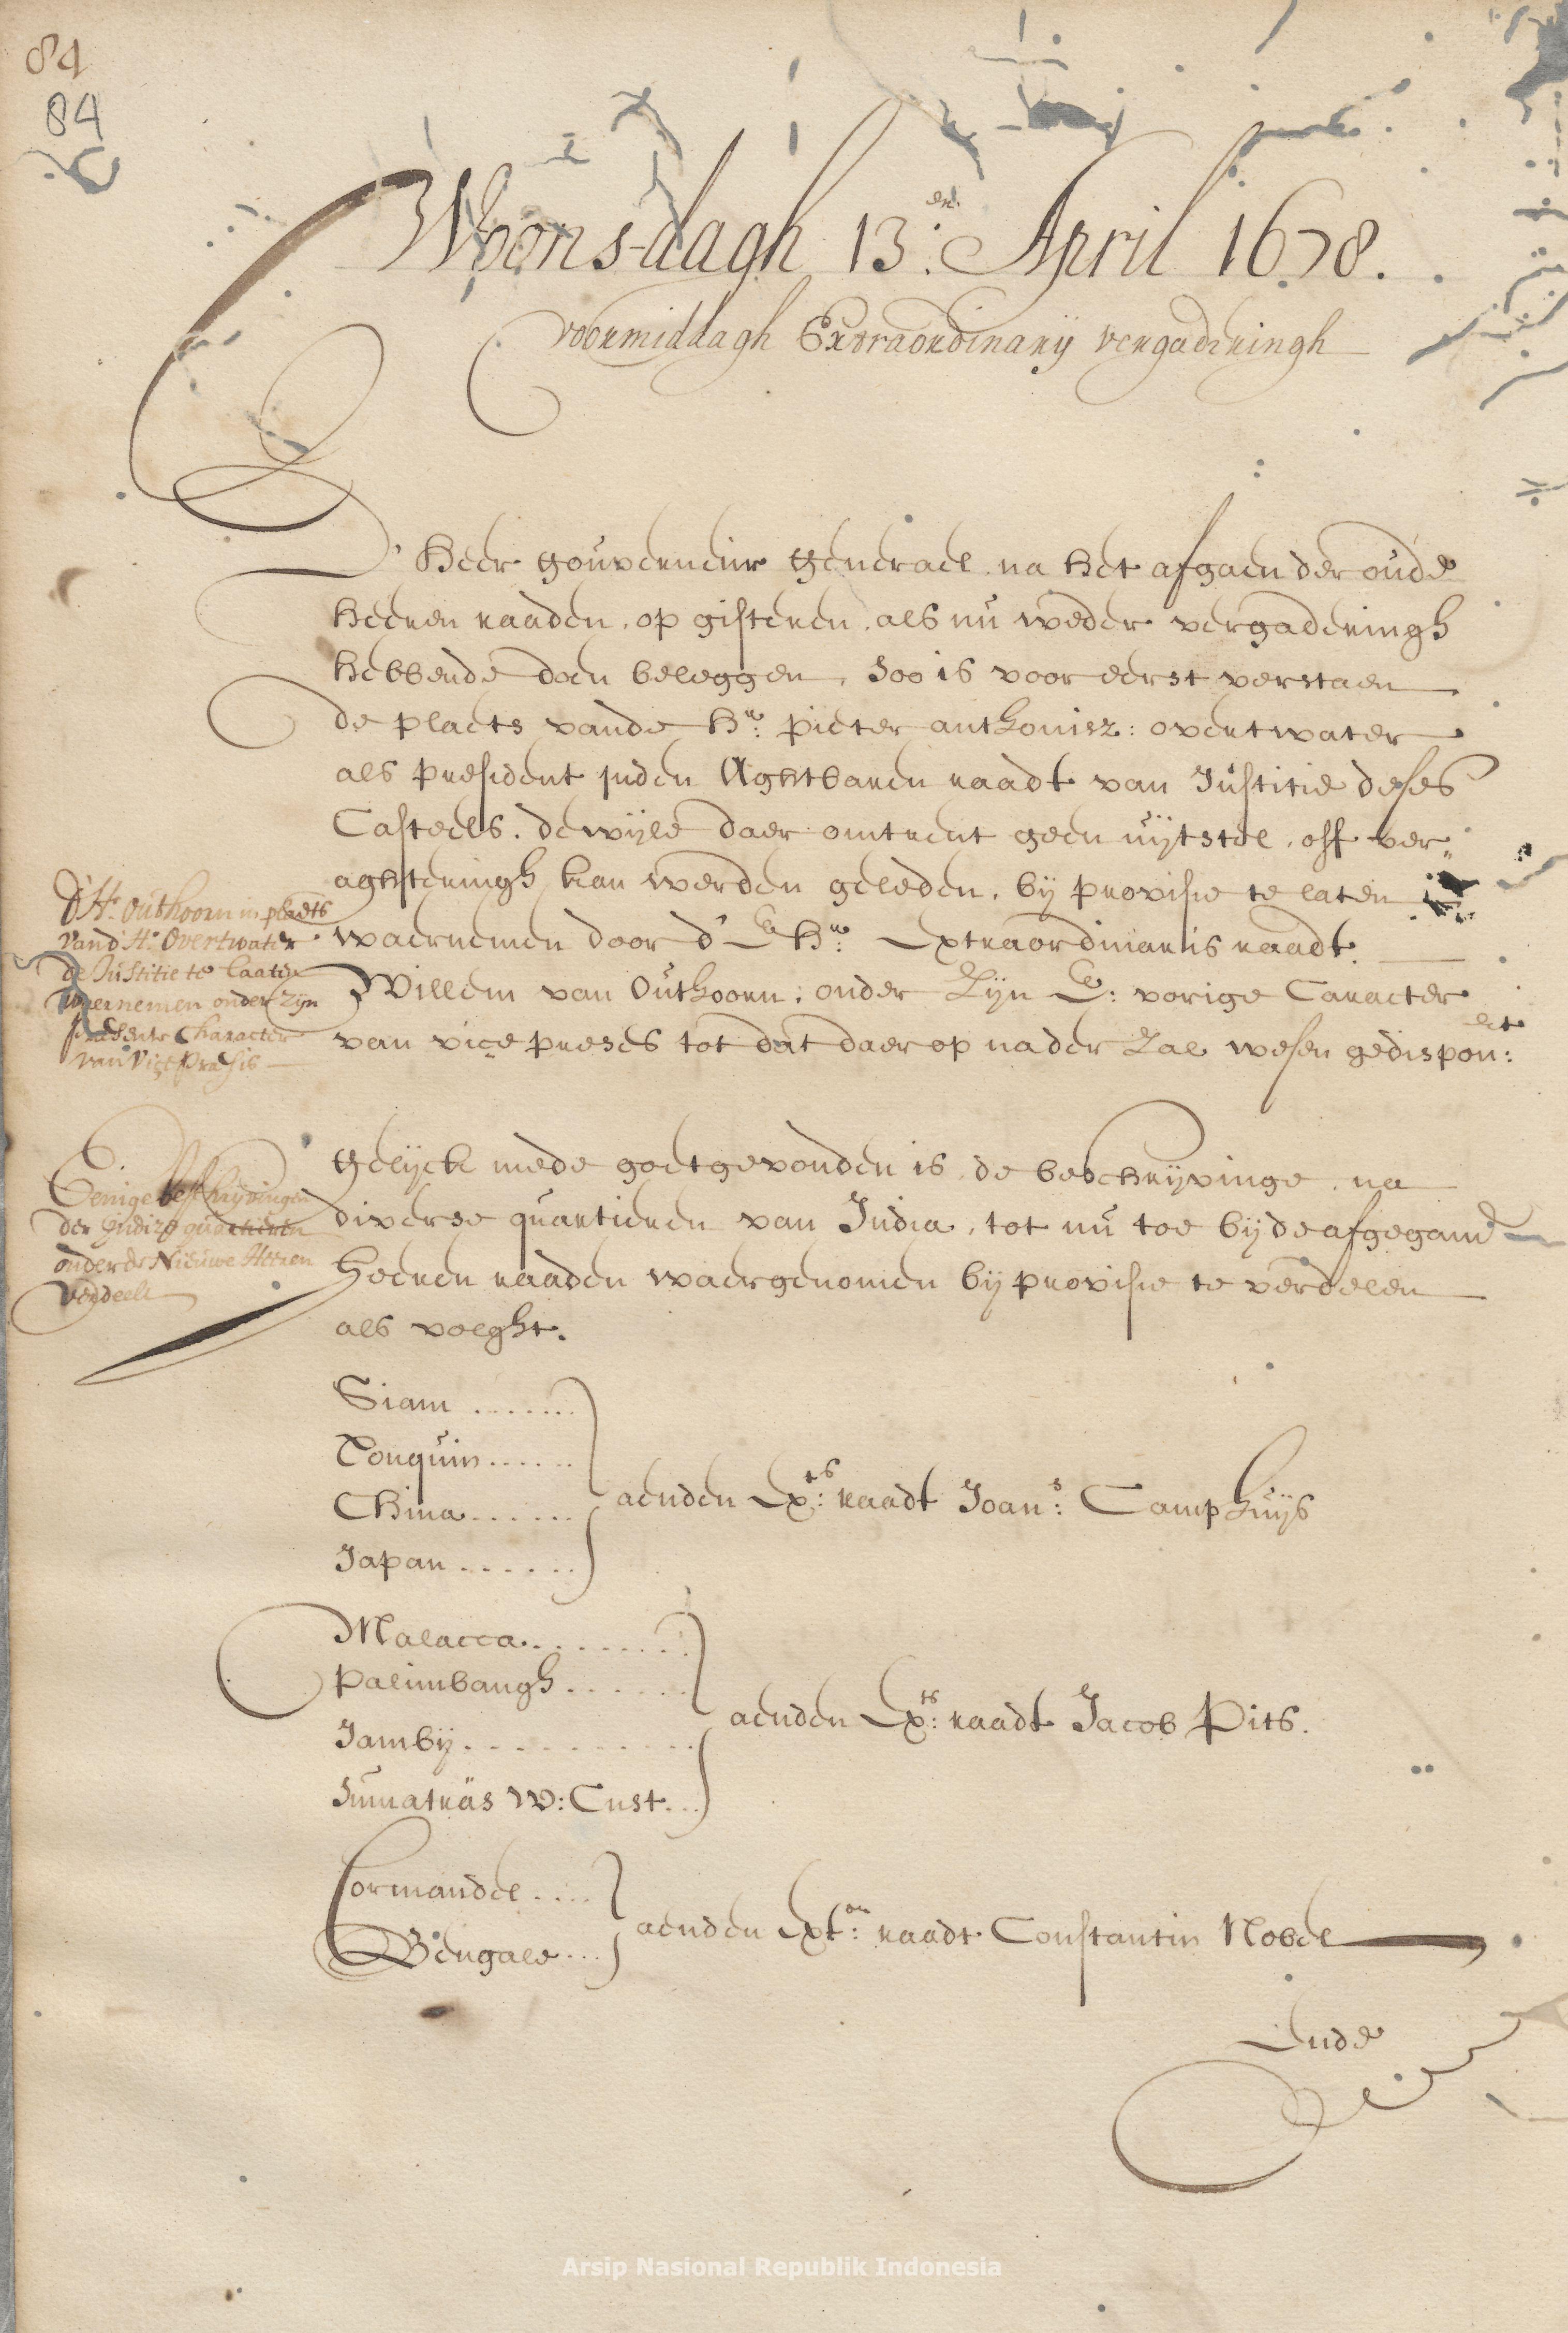 84
84
Woonsdagh 13:en April 1678.
voormiddagh Extraordinarij vergaderingh
D' Heer gouverneur Generael na het afgaen der oude
heeren raaden, op gisteren, als nu weder vergaderingh
hebbende doen beleggen, Soo is voor eerst verstaen
de plaets vande Hr: pieter anthonisz: overtwater
als president inden Aghtbaren raadt van Justitie deses
Casteels. dewijle daer omtrent geen uijtstel, off ver„
aghteringh kan werden geleden, bij provisie te laten
waernemen door d' E Hr: Extraordinaris raadt
Willem van Outhoorn; onder Zijn E: vorige Caracter
van vice preses tot dat daer op nader Zal wesen gedispon:eert
D' Hr. Outhoorn in plaets
van d' Hr. Overtwater
de Justitie te laaten
waernemen onder zijn
presente Character
van Vice Presis
Gelijck mede goetgevonden is, de beschrijvinge, na
diverse quartieren van India, tot nu toe bij de afgegane
heeren raaden waergenomen bij provisie te verdelen
als volght.
Eenige beschrijvingen
der Indize quartieren
onder de Nieuwe Heeren
Verdeelt
Siam .......
Tonquin......
China......
Japan......
aenden Ex:ts raadt Joan:s Camphuijs
Malacca........
Palimbangh......
Jambij..........
Sumatras W: Cust...
aenden Ex:ts raadt Jacob Pits.
Cormandel....
Bengale...
aenden Ext:en raadt Constantin Nobel
Ende
Arsip Nasional Republik Indonesia